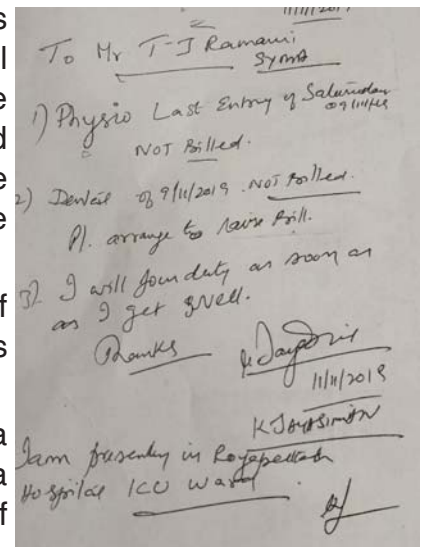 11/11/2019
To Mr T-J Ramani
SYMA
1) Physio Last Entry of Saturday
09/11/19
NOT Billed.
2) Dental of 9/11/2019. NOT Billed.
Pl. arrange to raise Bill.
3). I will join duty as soon as
as I get Well.
Thanks
11/11/2019
K JAYASIMAN
I am presently in Royapettah
Hospital ICU Ward